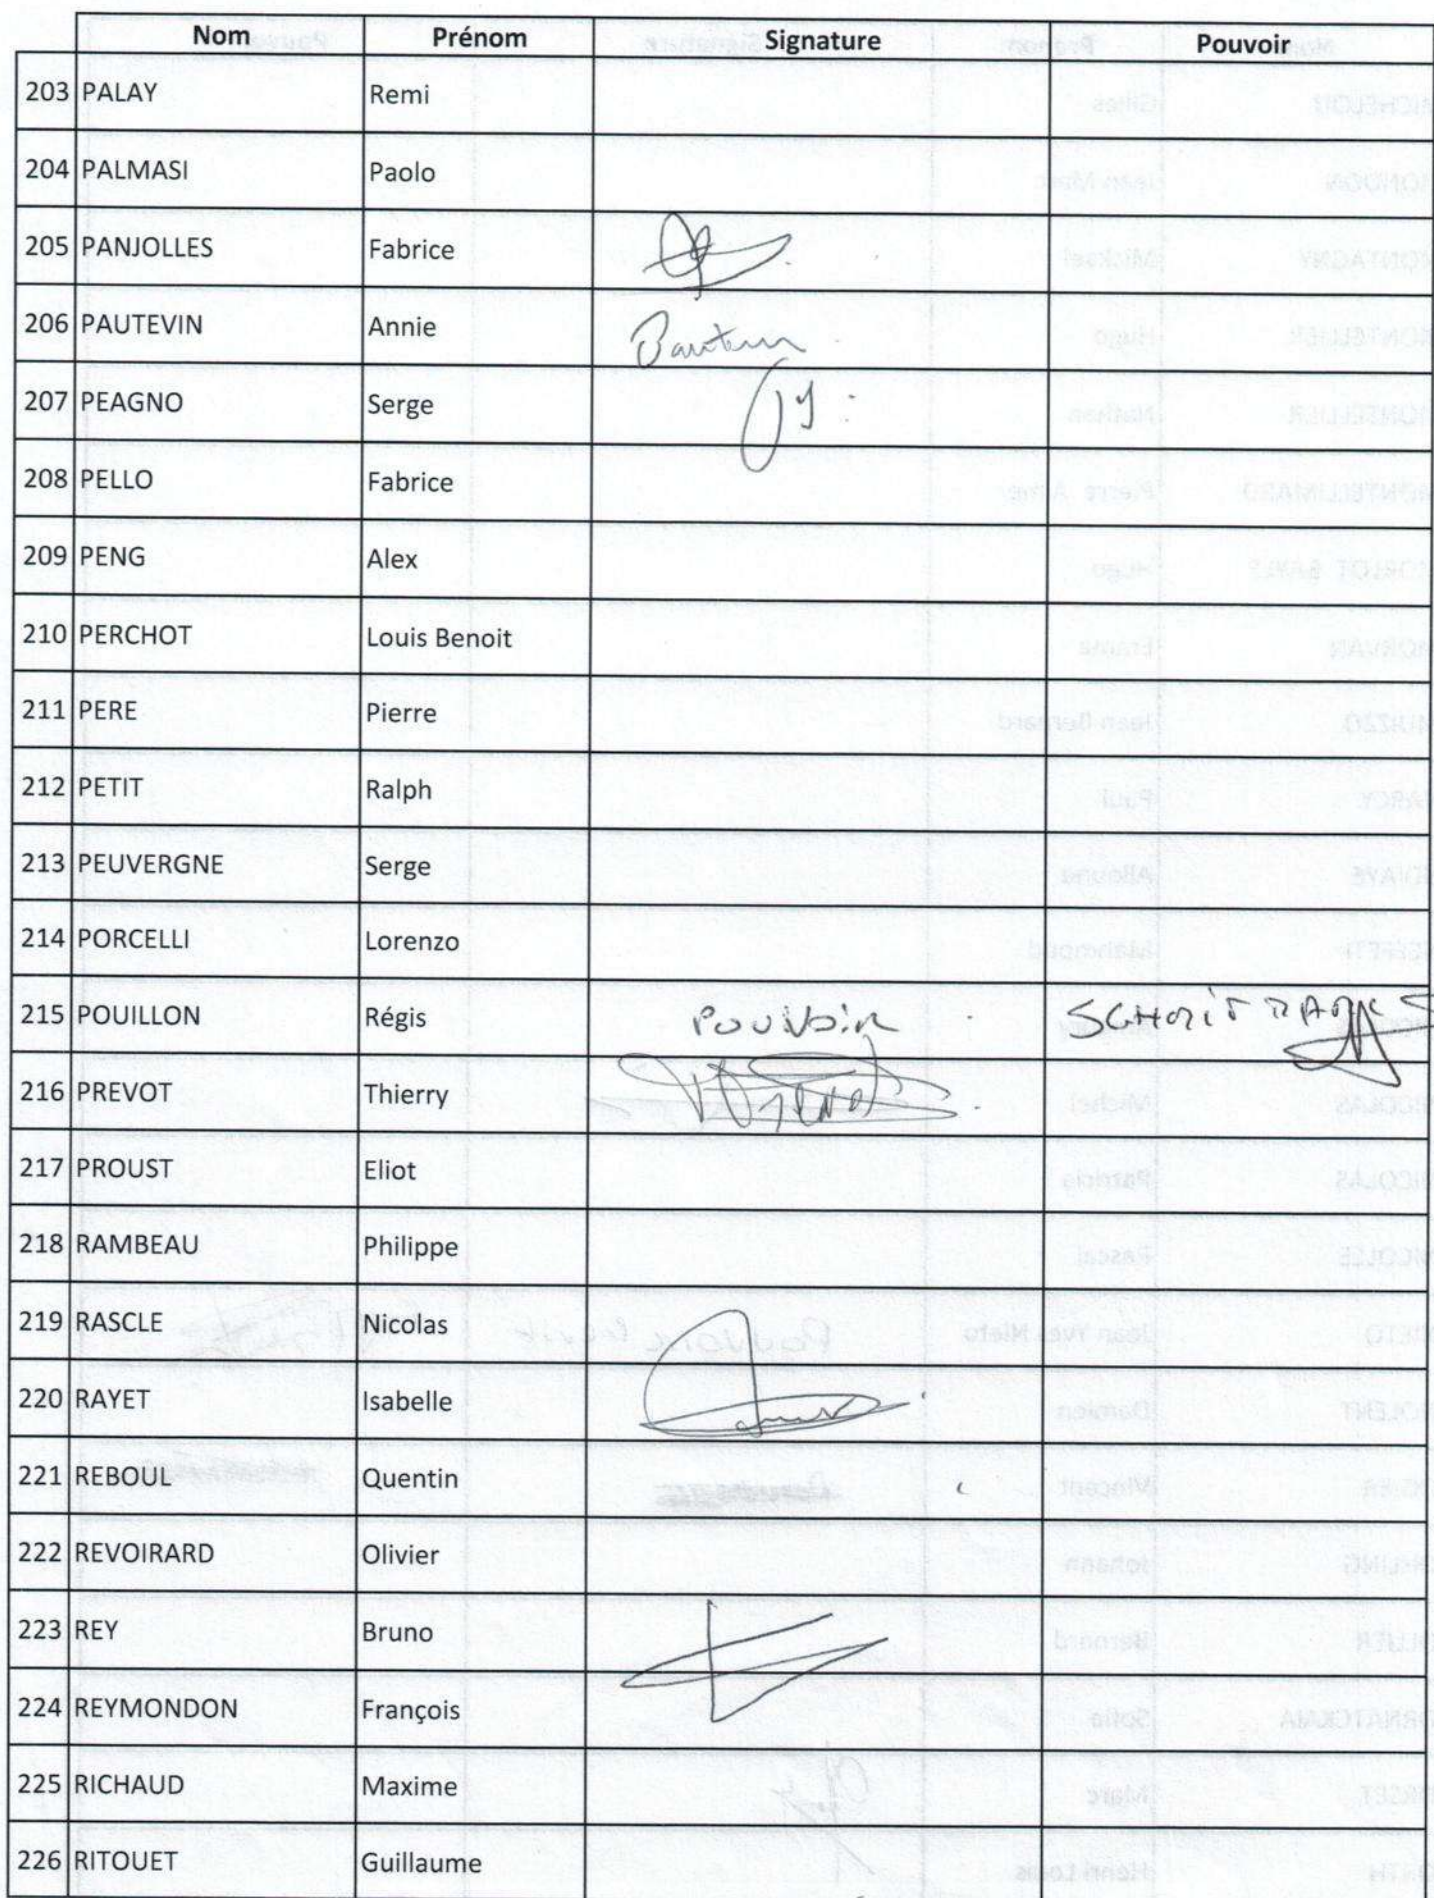 Nom Prénom Signature Pouvoir
203 PALAY Remi
204 PALMASI Paolo
205 PANJOLLES Fabrice
206 PAUTEVIN Annie
207 PEAGNO Serge
208 PELLO Fabrice
209 PENG Alex
210 PERCHOT Louis Benoit
211 PERE Pierre
212 PETIT Ralph
213 PEUVERGNE Serge
214 PORCELLI Lorenzo
215 POUILLON Régis POUVOIR
216 PREVOT Thierry
217 PROUST Eliot
218 RAMBEAU Philippe
219 RASCLE Nicolas
220 RAYET Isabelle
221 REBOUL Quentin
222 REVOIRARD Olivier
223 REY Bruno
224 REYMONDON François
225 RICHAUD Maxime
226 RITOUET Guillaume